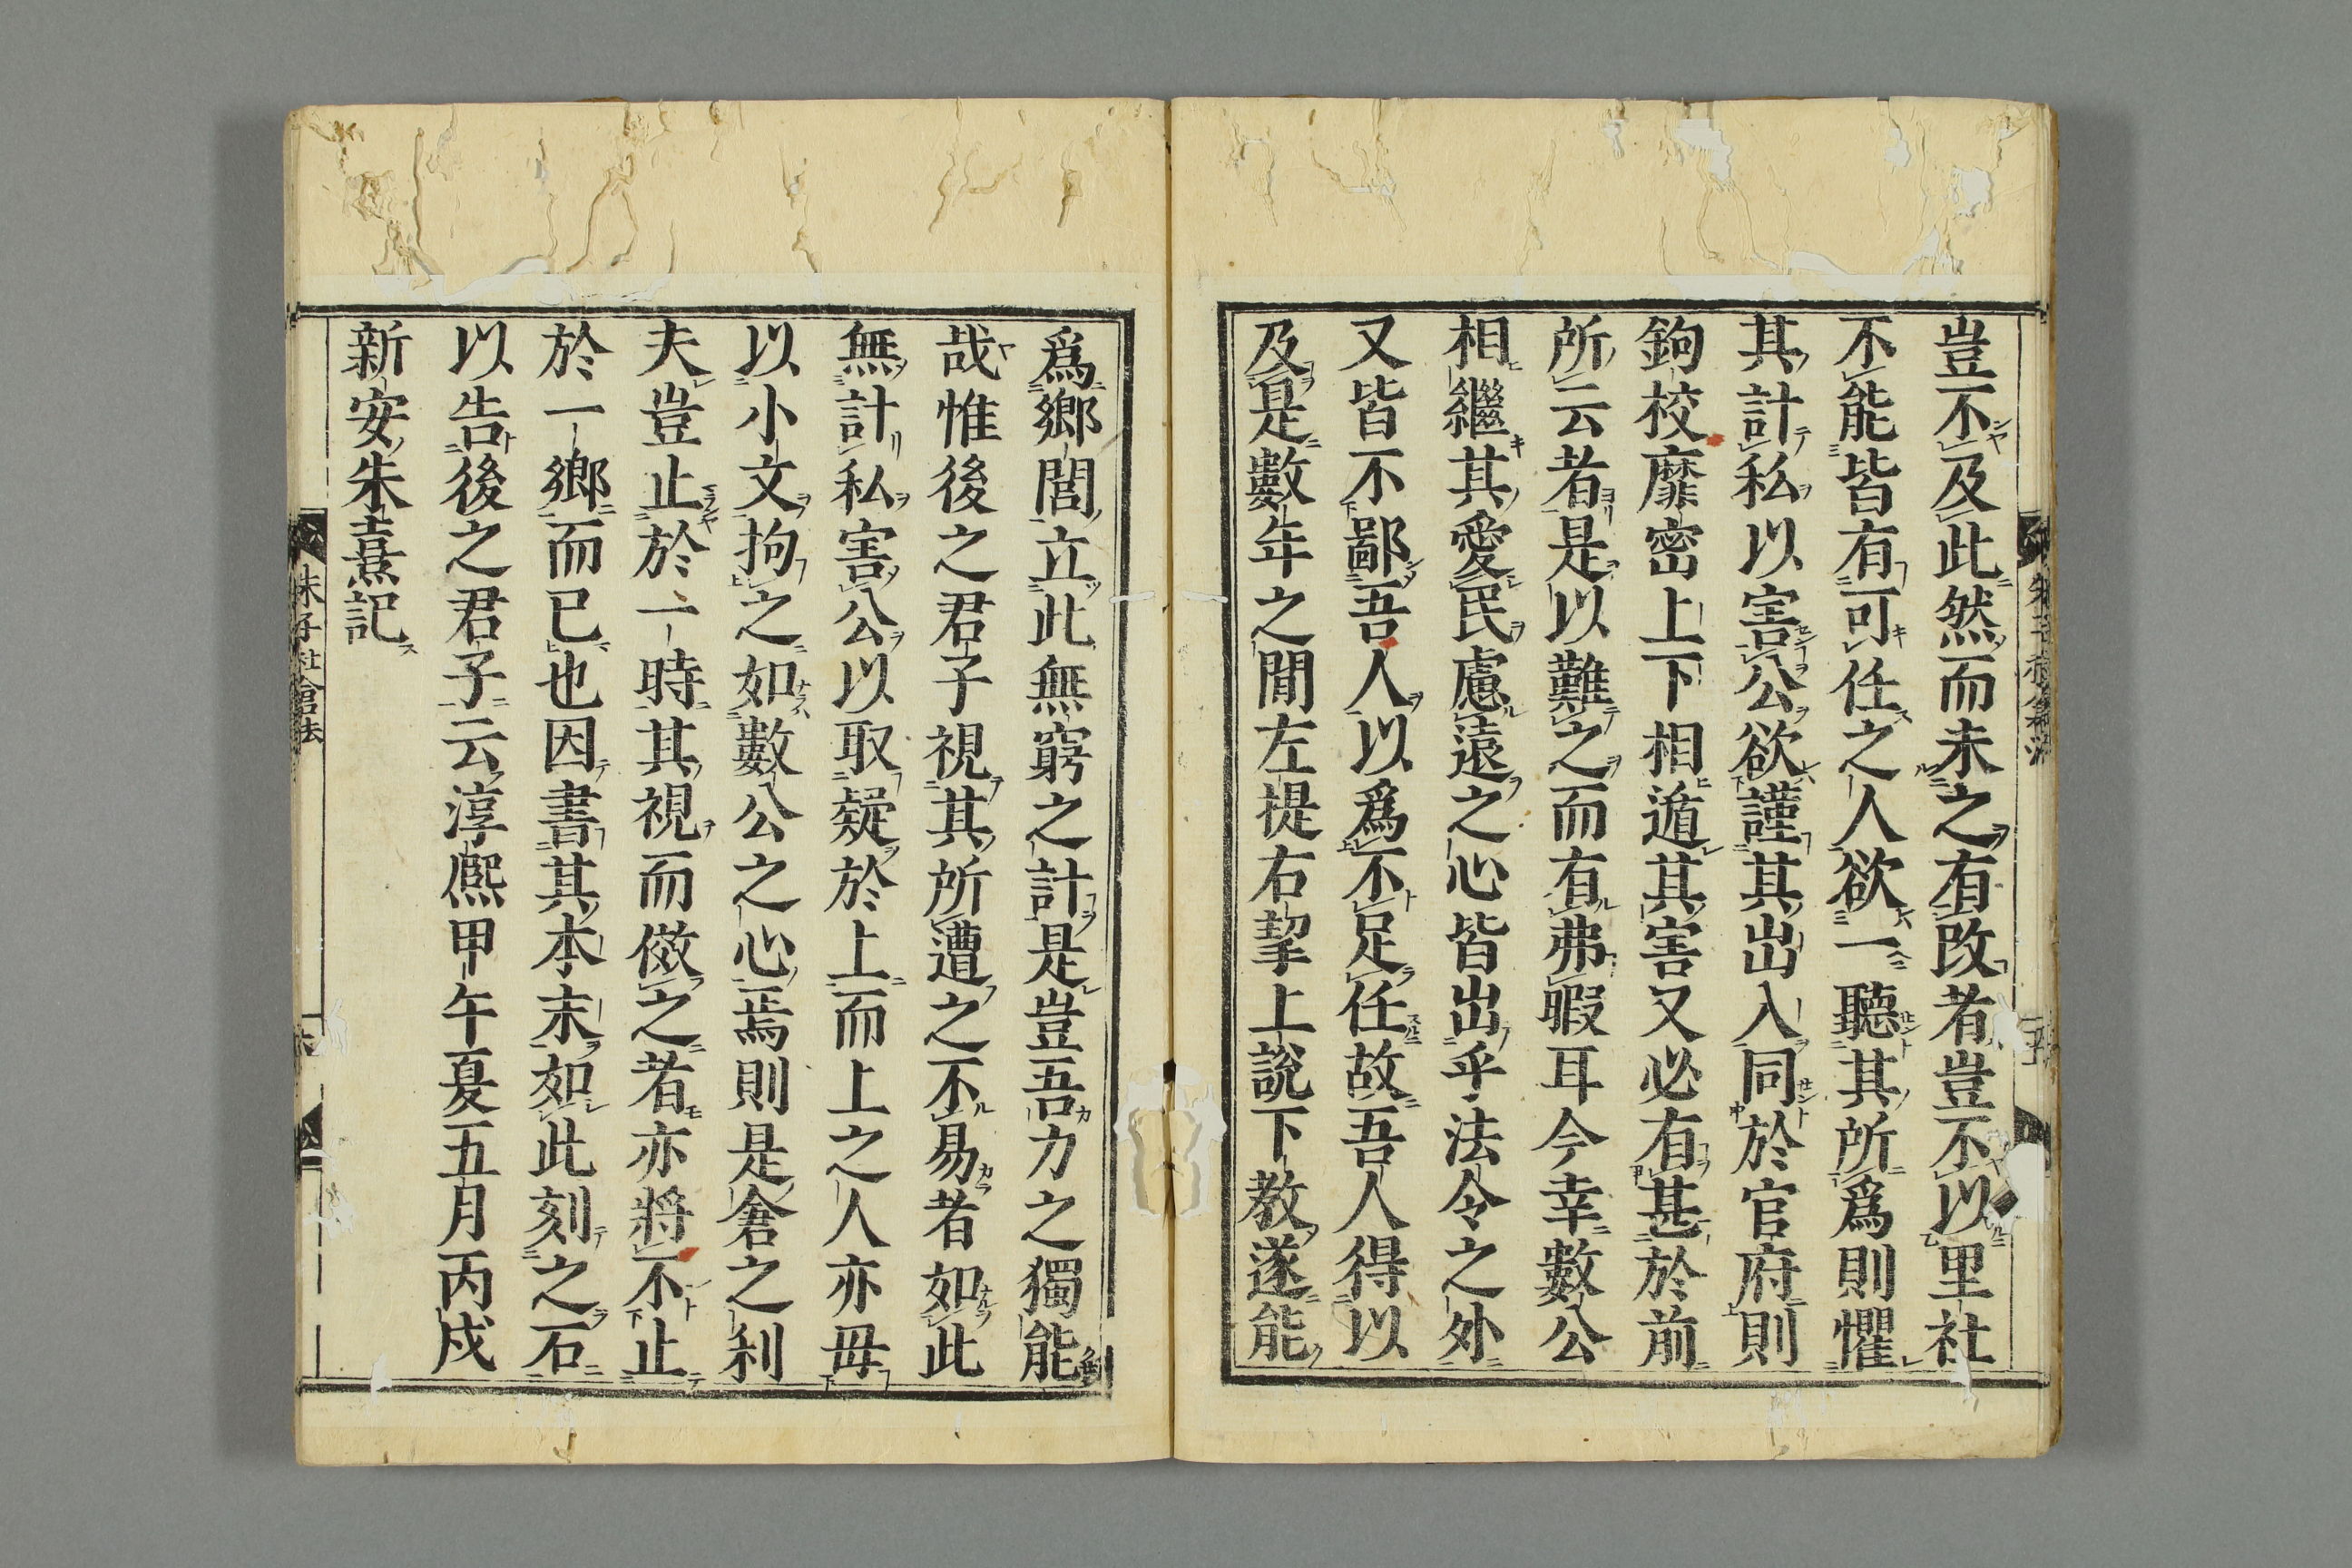 豈不及此然而未之有改者豈不以里社
不能皆有可任之人欲一聽其所爲則懼
其計私以害公欲謹其出入同於官府則
鉤校靡密上下相遁其害又必有甚於前
所云者是以難之而有弗暇耳今幸數公
相繼其愛民慮遠之心皆出乎法令之外
又皆不鄙吾人以爲不足任故吾人得以
及是數年之間左提右挈上說下教遂能
爲鄉閭立此無窮之計是豈吾力之獨能
哉惟後之君子視其所遭之不易者如此
無計私害公以取疑於上而上之人亦毋
以小文拘之如數公之心焉則是倉之利
夫豈止於一時其視而傚之者亦將不止
於一鄉而已也因書其本末如此刻之石
以告後之君子云淳熈甲午夏五月丙戍
新安朱熹記
朱子社倉法
六